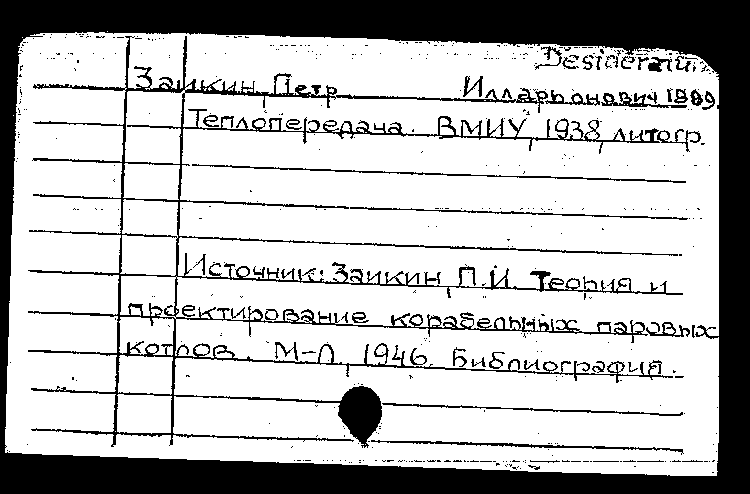 Desiderium
Заикин, Петр Илларионович 1909.
Теплопередача. ВМИУ, 1938, литогр.
Источник: Заикин, П.И. Теория и
проектирование корабельных паровых
котлов. М-Л, 1946. Библиография.